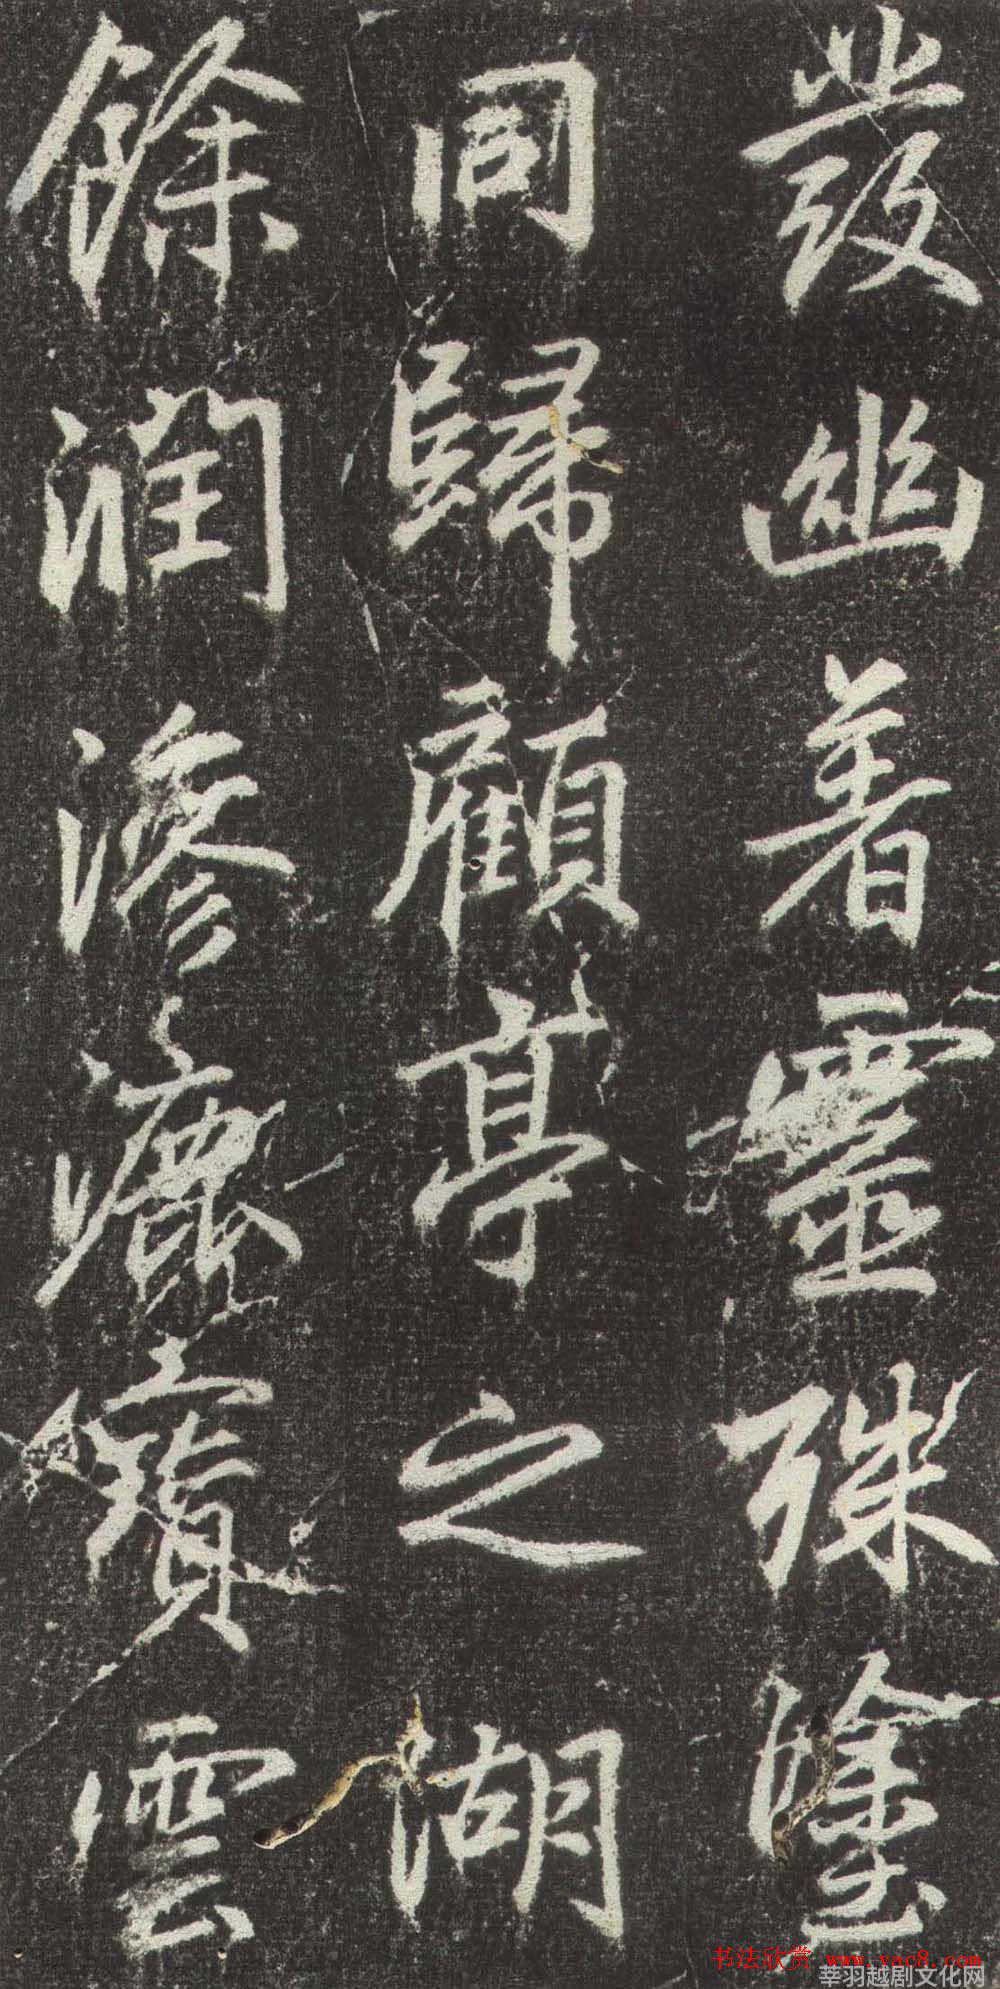 發幽著靈殊塗
同歸顧亭之湖
餘潤滲漉寶雲
书法欣赏 www.yac8.com
莘羽越剧文化网